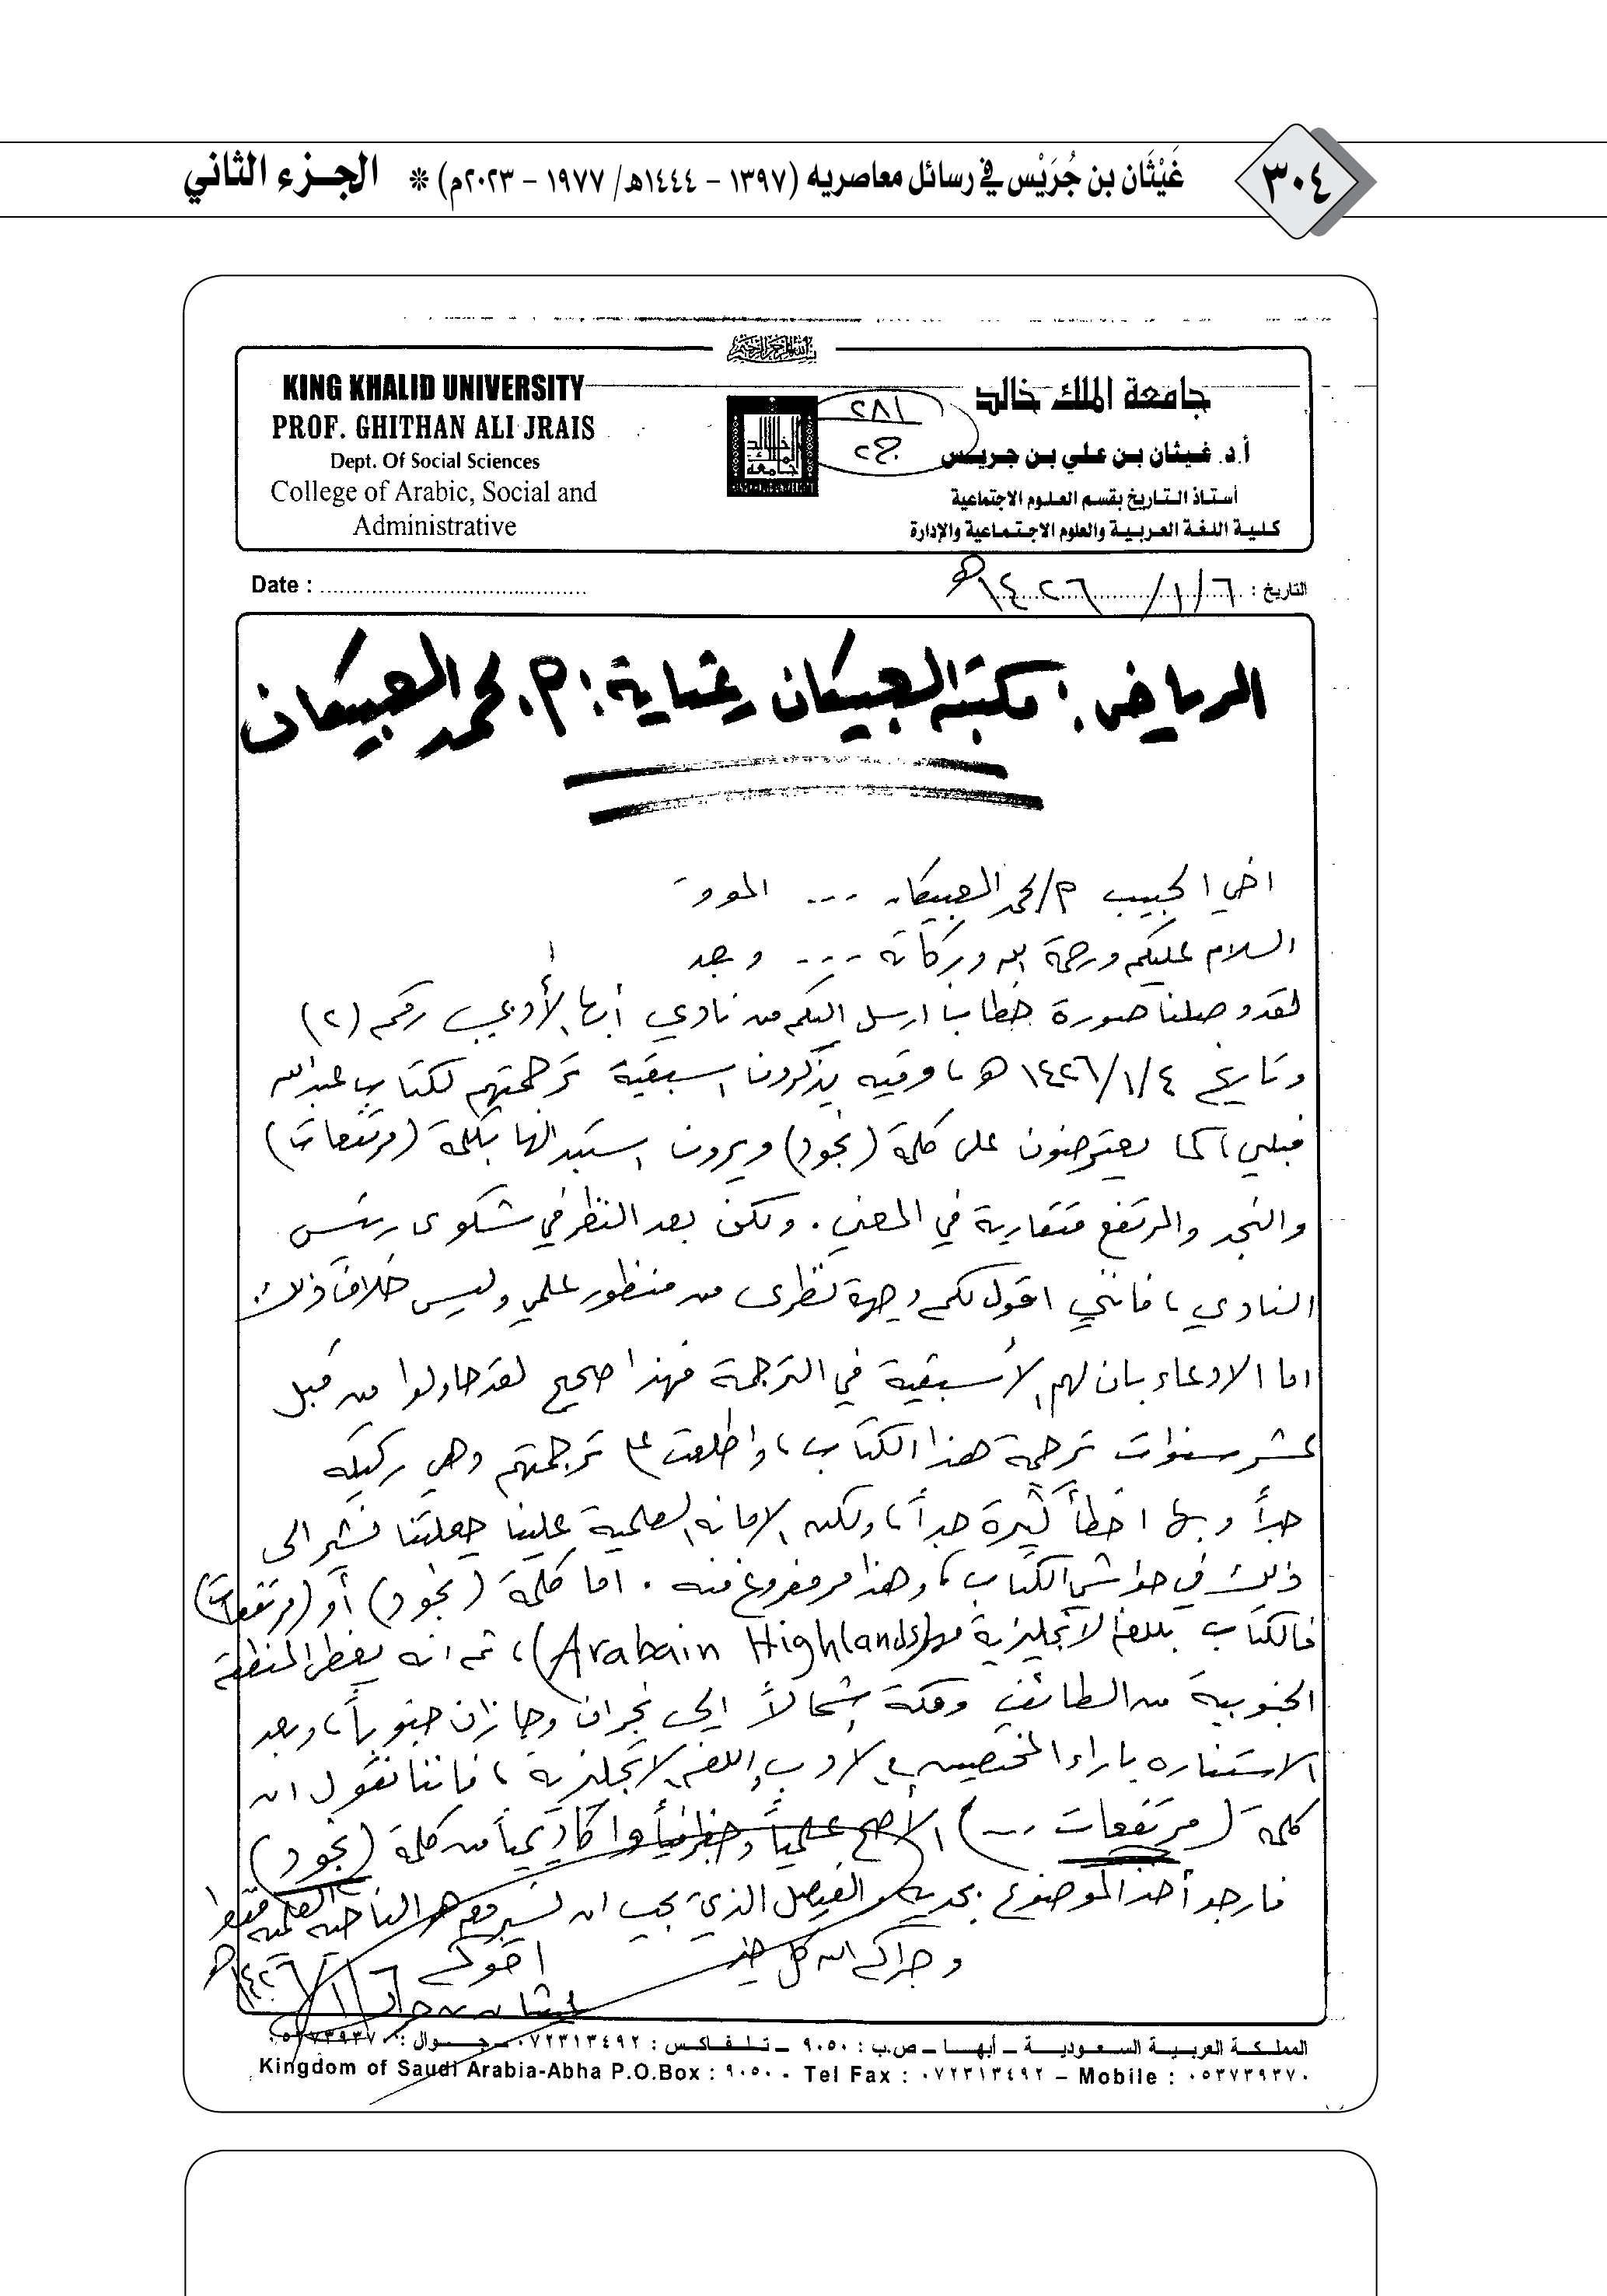 ٣٠٤
غَيْثَان بن جُرَيْس في رسائل معاصريه (١٣٩٧ - ١٤٤٤هـ/ ١٩٧٧ - ٢٠٢٣م) * الجـزء الثاني
بسم الله الرحمن الرحيم
KING KHALID UNIVERSITY
PROF. GHITHAN ALI JRAIS
Dept. Of Social Sciences
College of Arabic, Social and
Administrative
٢٨١
ج٢
جامعة الملك خالد
أ.د. غيثان بن علي بن جريس
أستاذ التاريخ بقسم العلوم الاجتماعية
كلية اللغة العربية والعلوم الاجتماعية والإدارة
التاريخ : ٦/١/١٤٢٦هـ
Date :
الرياض : مكتبة العبيكان بعناية : م. محمد العبيكان
اخي الحبيب م/محمد العبيكان ... الموقر
السلام عليكم ورحمة الله وبركاته ... وبعد
لقد وصلنا صورة خطاب ارسل اليكم من نادي أبها الأدبي رقم (٢)
وتاريخ ١٤٢٦/١/٤هـ، وفيه يذكرون اسبقية ترجمتهم لكتاب عبدالله
فيلبي، كما يعترضون على كلمة (نجود) ويرون استبدالها بكلمة (مرتفعات)
والنجد والمرتفع متقاربة في المعنى. ولكن بعد النظر في شكوى رئيس
النادي، فانني اقول لكم وجهة نظري من منظور علمي وليس خلاف ذلك.
اما الادعاء بان لهم الأسبقية في الترجمة فهذا صحيح لقد حاولوا من قبل
عشر سنوات ترجمة هذا الكتاب، واطلعت على ترجمتهم وهي ركيكه
جداً وبها اخطأ كثيرة جداً، ولكن الامانه العلمية علينا جعلتنا نشير الى
ذلك في حواشي الكتاب، وهذا مرمفروغ منه. اما كلمة (نجود) أو (مرتفعات)
فالكتاب باللغة الانجليزية هو (Arabain Highlands)، ثم انه يغطي المنطقة
الجنوبية من الطائف ومكة شمالاً الى نجران وجازان جنوباً، وبعد
الاستناره باراء المختصين في الأدب واللغة الانجليزية، فاننا نقول ان
كلمة (مرتفعات ...) الأصح علمياً وجغرافياً واكاديمياً من كلمة (نجود)
فارجو أخذ الموضوع بجدية والفيصل الذي يجب ان نسير معه هو الناحيه العلمية
وجزاكم الله كل خير اخوكم
غيثان بن جريس ١٤٢٦/١/٦هـ
المملكـة العربيـة السعوديـة ـ أبهـا ـ ص.ب : ٩٠٥٠ ـ تـلـفـاكـس : ٠٧٢٣١٣٤٩٢ ـ جــوال : ٠٥٣٧٣٩٣٧٠
Kingdom of Saudi Arabia-Abha P.O.Box : ٩٠٥٠ - Tel Fax : ٠٧٢٣١٣٤٩٢ – Mobile : ٠٥٣٧٣٩٣٧٠